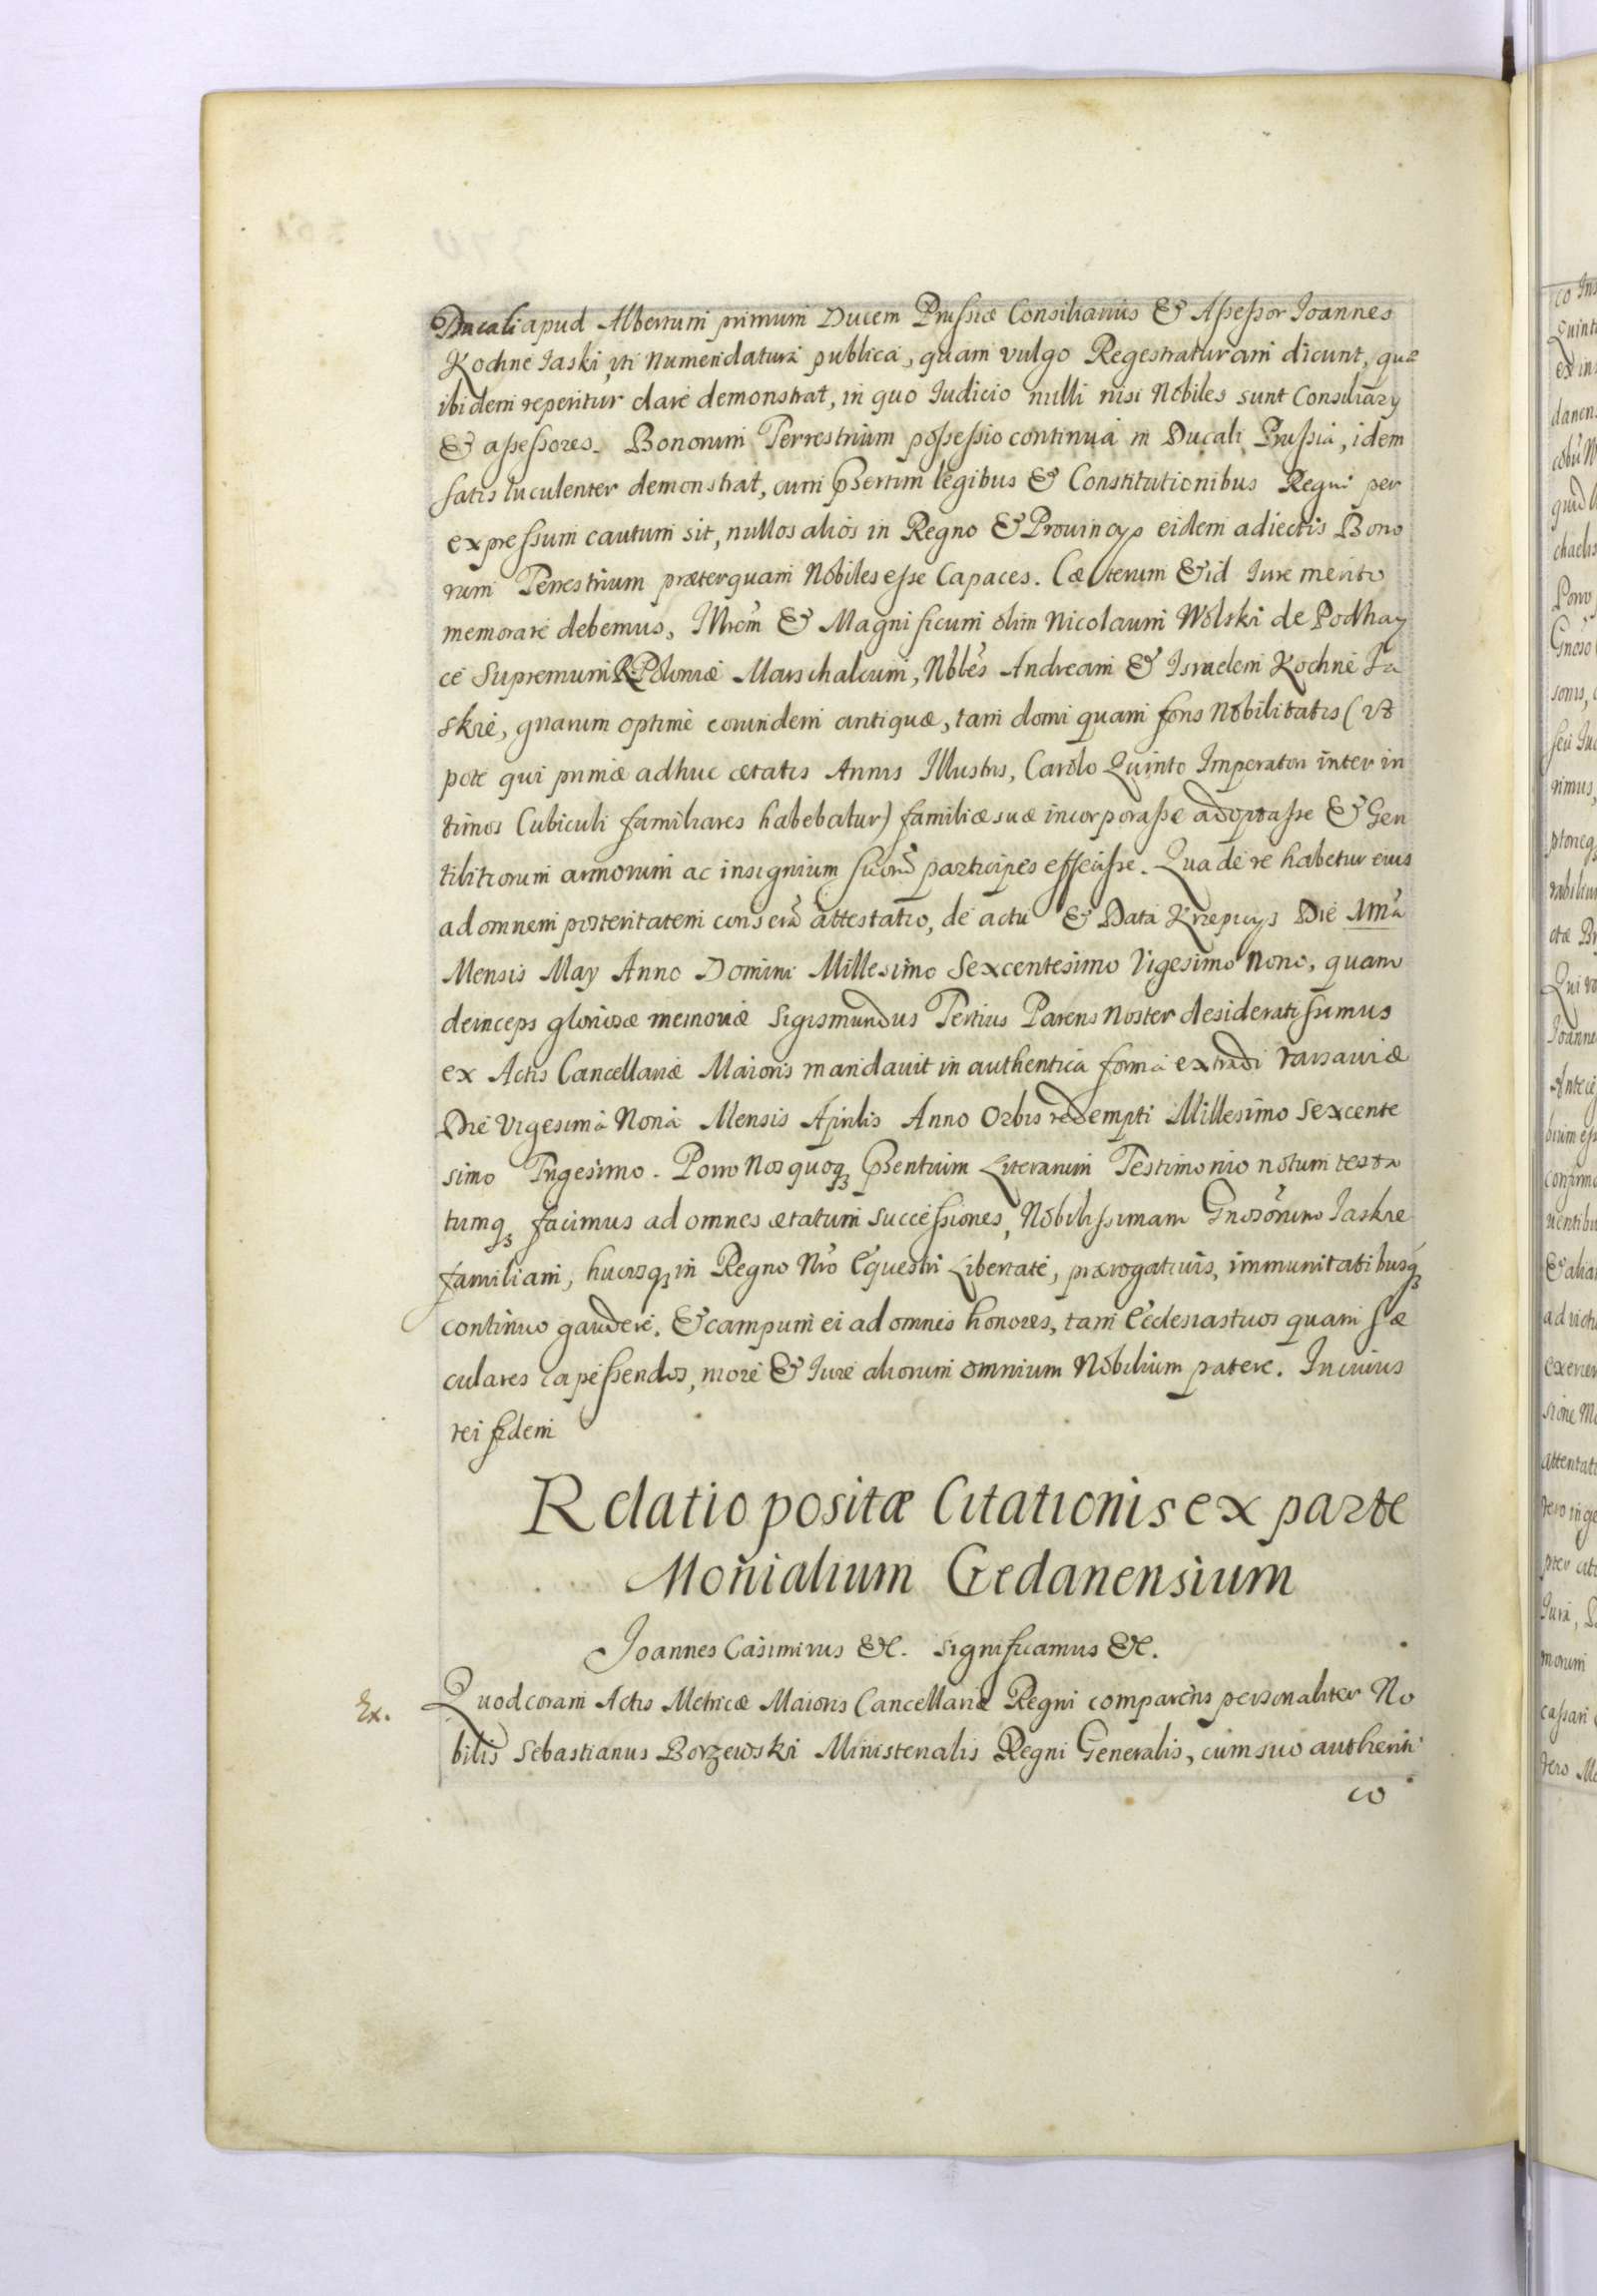 Ducali apud Albertum primum Ducem Prussiæ Consiliarius & Assessor Joannes
Kochne Jaski, uti Numendatura publica, quam vulgo Regestraturam dicunt, quæ
ibidem reperitur clare demonstrat, in quo Judicio nulli nisi Nobiles sunt Consiliary
& assessores. Bonorum Terrestrium possessio continua in Ducali Prussia, idem
satis luculenter demonstrat, cum psertim legibus & Constitutionibus Regni per
expressum cautum sit, nullos alios in Regno & Prouincys eidem adiectis Bono
rum Terrestrium præterquam Nobiles esse Capaces. Cæterum & id Jure merito
memorare debemus, Illrem & Magnificum olim Nicolaum Wolski de Podhay
ce Supremum R. Poloniæ Marschalcum, Nobles Andream & Israelem Kochne Ja
skie, gnarum optime eorundem antiquæ, tam domi quam foris Nobilitatis (ut
pote qui primæ adhuc ætatis Annis Illustris, Carolo Quinto Imperatori inter in
timos Cubiculi familiares habebatur) familiæ suæ incorporasse adoptasse & Gen
tilitiorum armorum ac insignium suorũ participes effecisse. Qua de re habetur eius
ad omnem posteritatem conscia attestatio, de actu & Data Krzepicys Die 1ma
Mensis May Anno Domini Millesimo Sexcentesimo Vigesimo Nono, quam
deinceps gloriosæ memoriæ Sigismundus Tertius Parens Noster desideratissimus
ex Actis Cancellariæ Maioris mandauit in authentica forma extradi Varsauiæ
Die Vigesima Nona Mensis Aprilis Anno Orbis redempti Millesimo Sexcente
simo Trigesimo. Porro Nos quoqȝ Psentium Literarum Testimonio notum testa
tumqȝ facimus ad omnes ætatum successiones, Nobilissimam Gnosorum Jaskie
familiam, hucusqȝ in Regno Nro Equestri Libertate, prærogatiuis, immunitatibusqȝ
continuo gaudere, & campum ei ad omnes honores, tam Ecclesiasticos quam sæ
culares capessendos, more & Jure aliorum omnium Nobilium patere. In cuius
rei fidem
Relatio positæ Citationis ex parte
Monialium Gedanensium
Joannes Casimirus &c. Significamus &c.
Ex. Quod coram Actis Metricæ Maioris Cancellariæ Regni comparens personaliter No
bilis Sebastianus Borzewski Ministerialis Regni Generalis, cum suo authenti
co